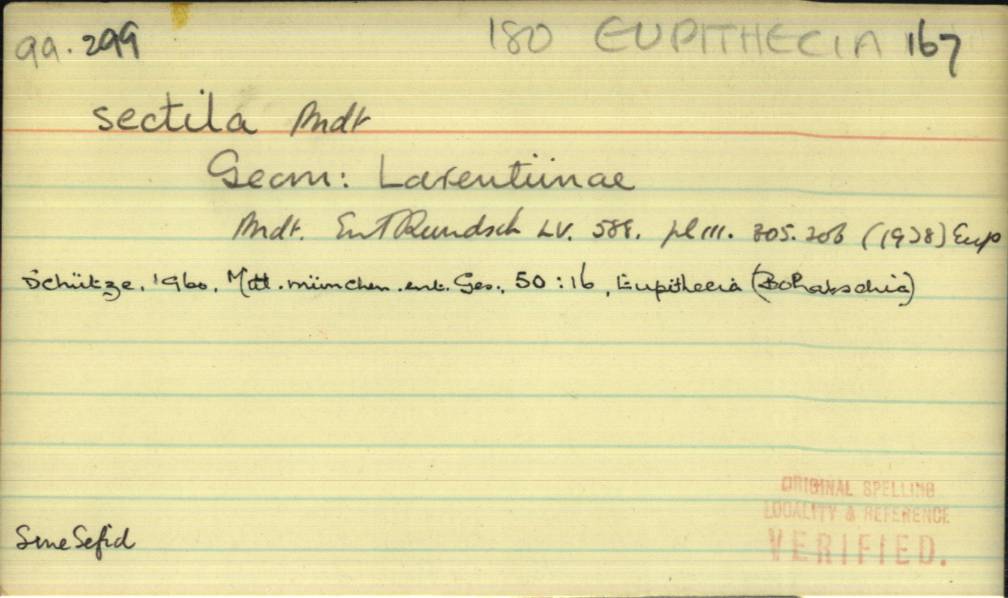 99.299 180 EUPITHECIA 167
sectila Brdt
Geom: Larentiinae
Brdt. Ent Rundsch LV. 588. pl III. 205. 206 (1938) Eup
Schütze, 1960, Mitt. münchen. ent. Ges., 50:16, Eupithecia (Bohatschia)
ORIGINAL SPELLING
LOCALITY & REFERENCE
VERIFIED.
Sine Sefid